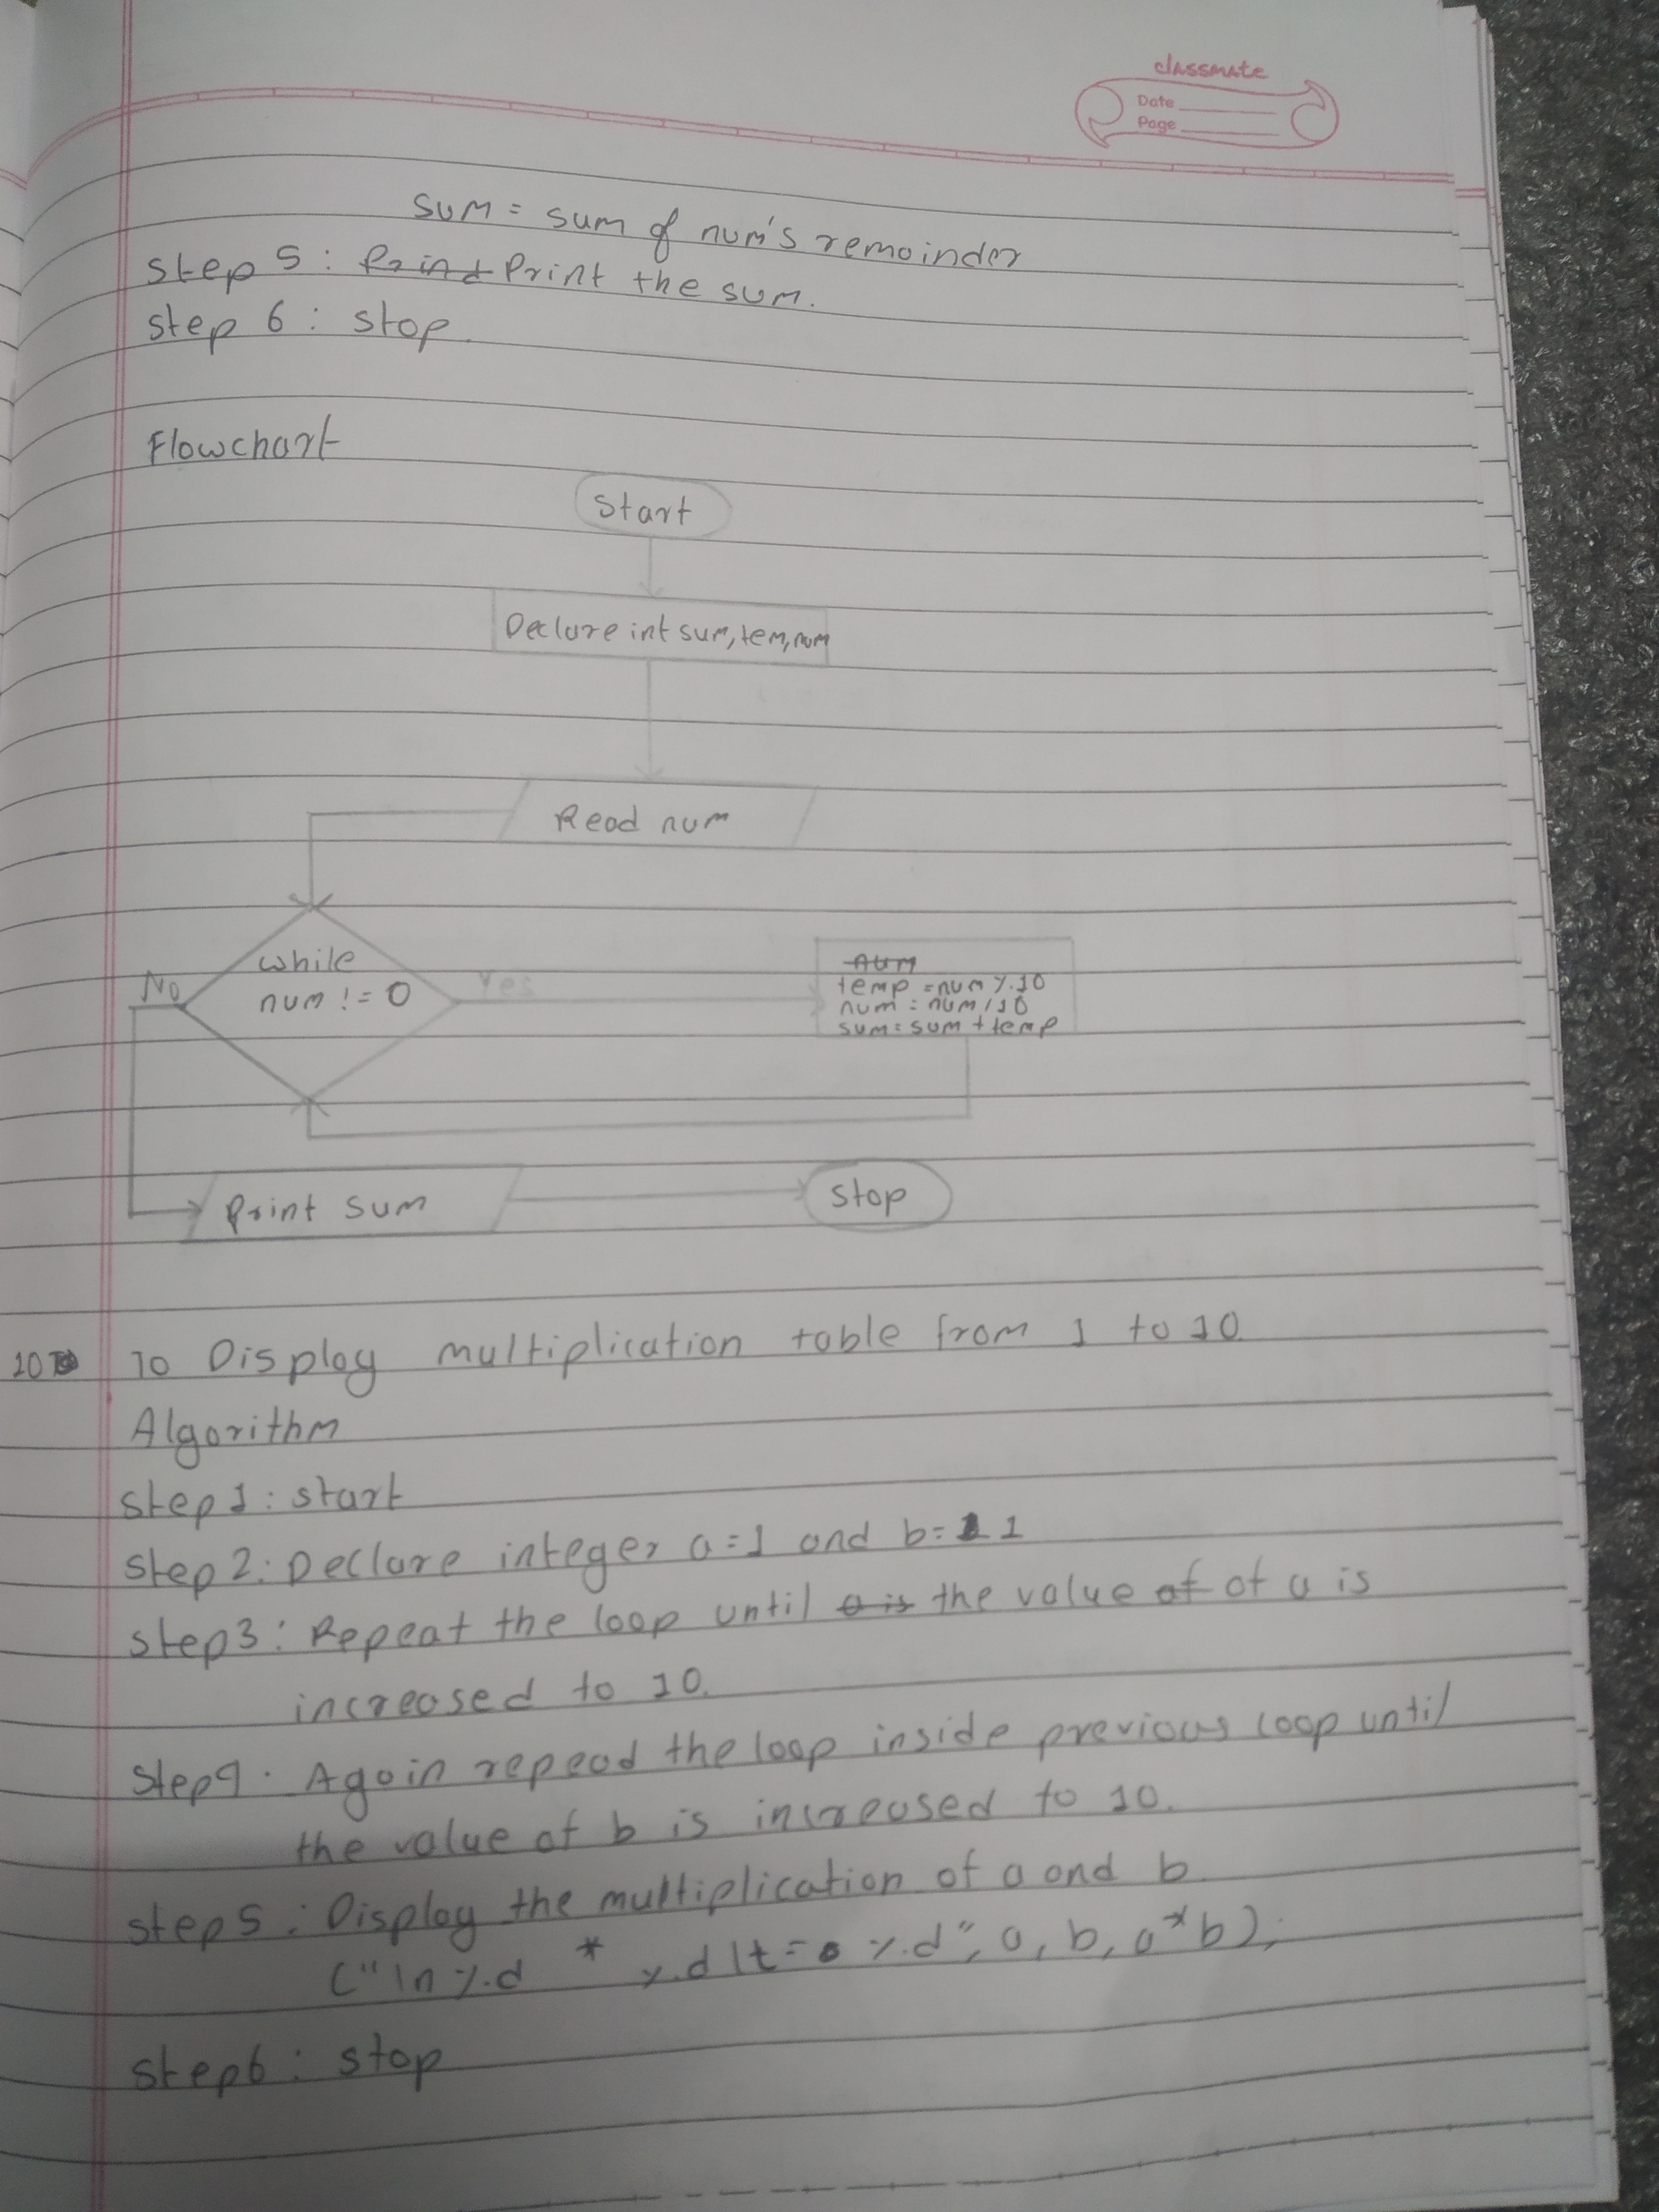 classmate
Date
Page
sum = sum of num's remainder
step 5 : Print Print the sum.
step 6 : stop
Flowchart
Start
Declare int sum, tem, num
Read num
while
num != 0
No
Yes
num
temp = num % 10
num = num / 10
sum = sum + temp
Print sum
stop
10 To Display multiplication table from 1 to 10
Algorithm
step 1 : start
step 2 : Declare integer a = 1 and b = 1
step 3 : Repeat the loop until a is the value of of a is
increased to 10.
step 4 . Again repead the loop inside previous loop until
the value of b is increased to 10.
step 5 : Display the multiplication of a and b
("\n %d * %d \t = %d", a, b, a*b);
step 6 : stop